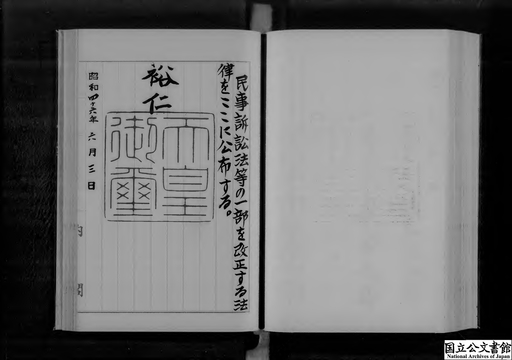 民事訴訟法等の一部を改正する法
律をここに公布する。
裕仁
天皇
御璽
昭和四十六年六月三日
内
閣
国立公文書館
National Archives of Japan